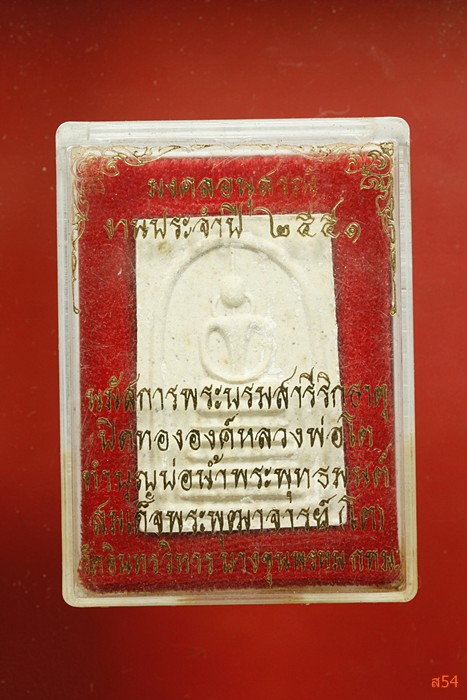 มงคลอนุสรณ์
งานประจำปี ๒๕๕๑
นมัสการพระบรมสารีริกธาตุ
ปิดทององค์หลวงพ่อโต
ทำบุญบ่อน้ำพระพุทธมนต์
สมเด็จพระพุฒาจารย์ (โต)
วัดอินทรวิหาร บางขุนพรหม กทม.
ส54